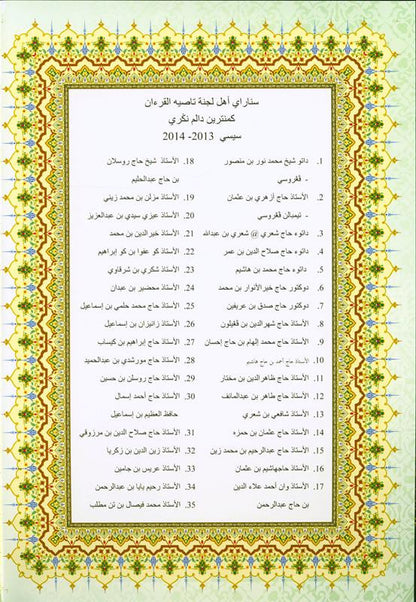 سناراي أهل لجنة تاصيه القرءان
كمنترين دالم نڬري
سيسي 2013- 2014
1. داتو شيخ محمد نور بن منصور
- ڤڠروسي
2. الأستاذ حاج أزهري بن عثمان
- تيمبالن ڤڠروسي
3. داتوء حاج شعري @ شعري بن عبدالله
4. داتوء حاج صلاح الدين بن عمر
5. داتوء حاج محمد بن هاشيم
6. دوكتور حاج خيرالأنوار بن محمد
7. دوكتور حاج صدق بن عريفين
8. الأستاذ حاج شهرالدين بن ڤڠيلون
9. الأستاذ حاج محمد إلهام بن حاج إحسان
10. الأستاذ حاج أحمد بن حاج هاشيم
11. الأستاذ حاج ظاهرالدين بن مختار
12. الأستاذ حاج ظاهر بن عبدالمانف
13. الأستاذ شافعي بن شعري
14. الأستاذ حاج عثمان بن حمزه
15. الأستاذ حاج عبدالرحيم بن محمد زين
16. الأستاذ حاجهاشيم بن عثمان
17. الأستاذ وان أحمد علاء الدين
بن حاج عبدالرحمن
18. الأستاذ شيخ حاج روسلان
بن حاج عبدالحليم
19. الأستاذ مزلن بن محمد زيني
20. الأستاذ عيزي سيدي بن عبدالعزيز
21. الأستاذ خيرالدين بن محمد
22. الأستاذ كو عفوا بن كو إبراهيم
23. الأستاذ شكري بن شرقاوي
24. الأستاذ محضير بن عبدان
25. الأستاذ حاج محمد حلمي بن إسماعيل
26. الأستاذ زانيزان بن إسماعيل
27. الأستاذ حاج إبراهيم بن كيساب
28. الأستاذ حاج مورشدي بن عبدالحميد
29. الأستاذ حاج روسلن بن حسين
30. الأستاذ حاج أحمد إسمال
حافظ العظيم بن إسماعيل
31. الأستاذ حاج صلاح الدين بن مرزوقي
32. الأستاذ زين الدين بن زكريا
33. الأستاذ عريس بن جامين
34. الأستاذ رحيم بايا بن عبدالرحمن
35. الأستاذ محمد فيصال بن تن مطلب